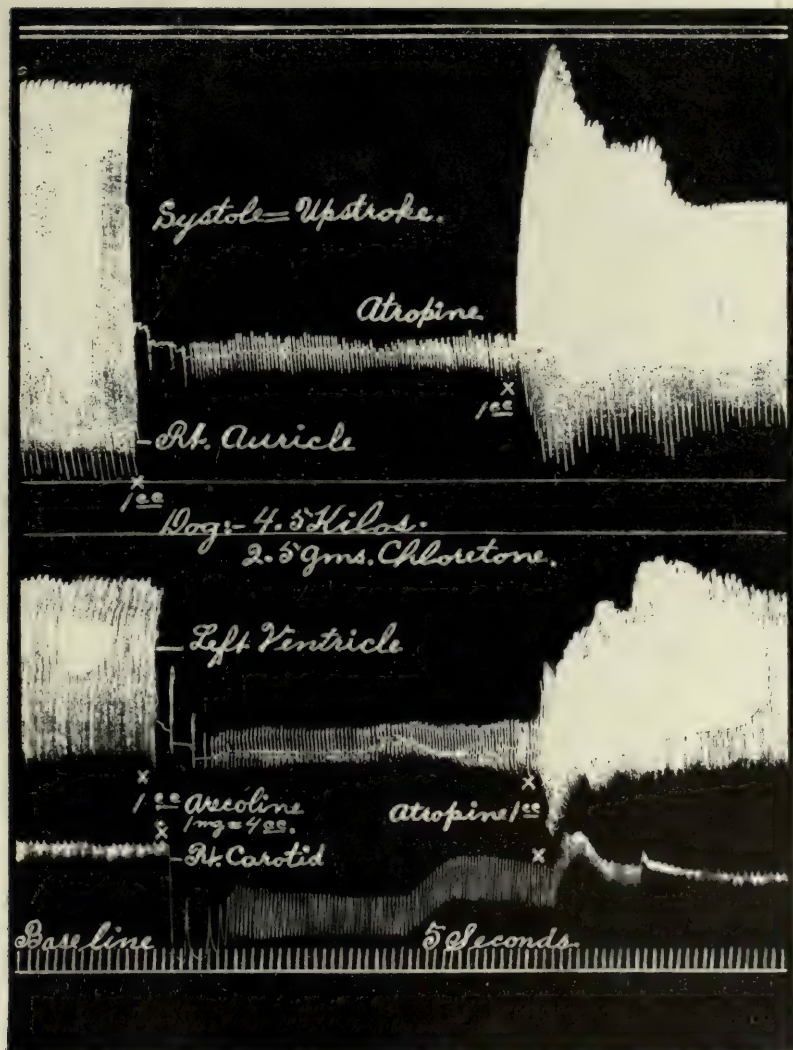 Systole = Upstroke.
Atropine
x
1cc
Rt. Auricle
x
1cc
Dog:- 4.5 Kilos.
2.5 gms. Chloretone.
Left Ventricle
x
x
1cc Arecoline
1mg = 4cc.
Atropine 1cc
x
x
Rt. Carotid
Base line
5 Seconds.